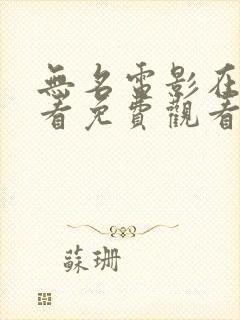 無名電影在
看免費觀看
蘇珊